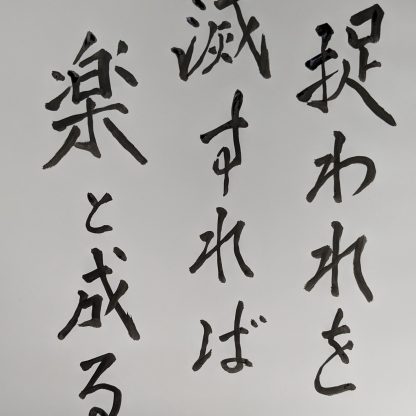 捉われを
滅すれば
楽と成る